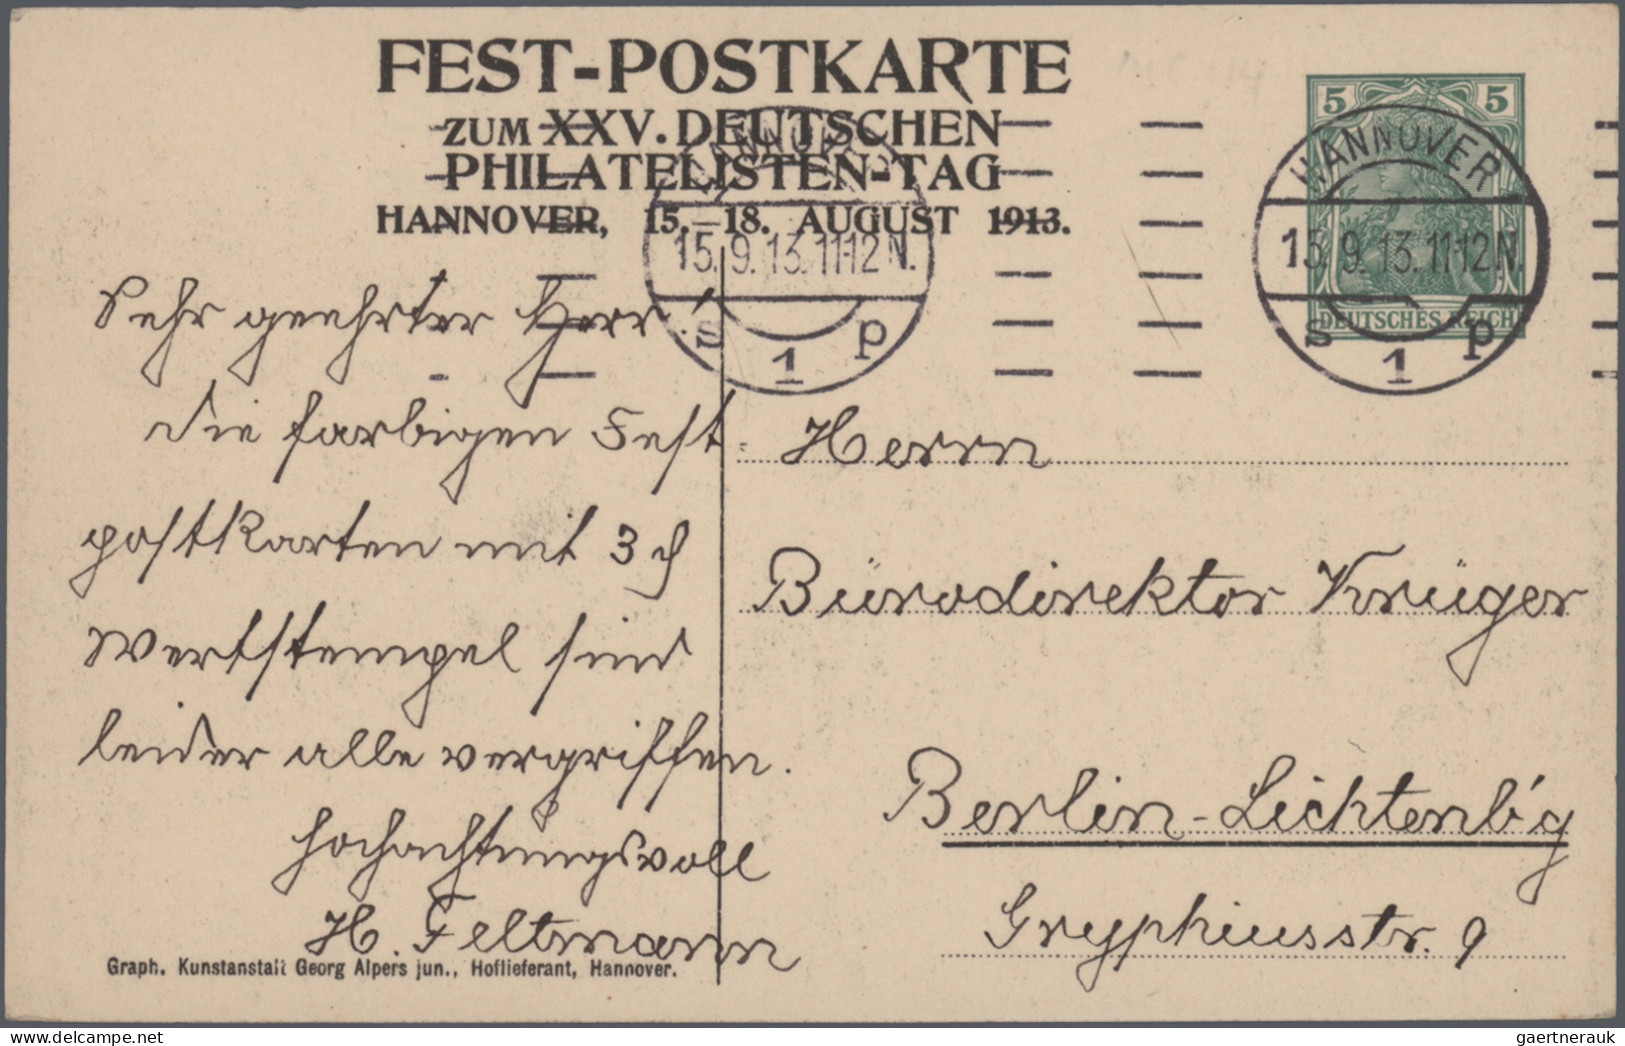 FEST-POSTKARTE
ZUM XXV. DEUTSCHEN
PHILATELISTEN-TAG
HANNOVER, 15.–18. AUGUST 1913.
5 5
DEUTSCHES REICH
HANNOVER 1
15.9.13.11-12N.
s 1 p
HANNOVER
15.9.13.11-12N.
s 1 p
Sehr geehrter Herr!
Die farbigen Fest-
postkarten mit 3 ₰
Wertstempel sind
leider alle vergriffen.
Hochachtungsvoll
H. Feltmann
Herrn
Bürodirektor Krüger
Berlin-Lichtenb'g
Gryphiusstr. 9
Graph. Kunstanstalt Georg Alpers jun., Hoflieferant, Hannover.
gaertnerauk